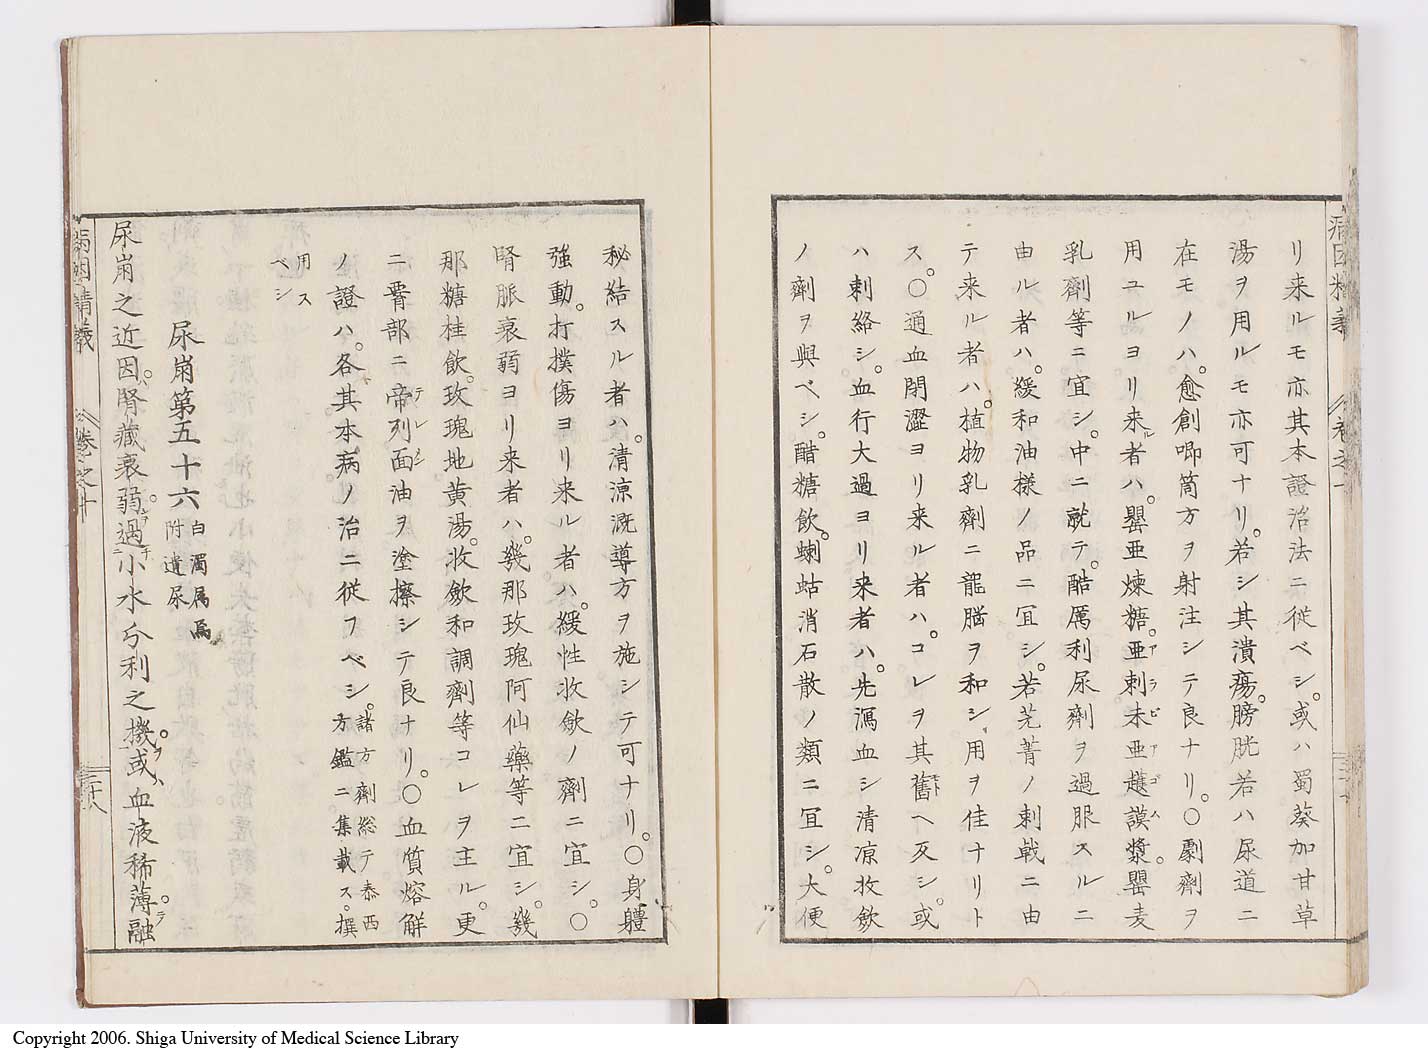 リ来ルモ亦其本證治法ニ従ベシ。或ハ蜀葵加甘草
湯ヲ用ルモ亦可ナリ。若シ其潰瘍。膀胱若ハ尿道ニ
在モノハ。愈創唧筒方ヲ射注シテ良ナリ。〇劇劑ヲ
用ユルヨリ来ル者ハ。罌亜煉糖。亜剌未亜謨漿。罌麦
乳劑等ニ宜シ。中ニ就テ。酷厲利尿劑ヲ過服スルニ
由ル者ハ。緩和油様ノ品ニ宜シ。若芫菁ノ刺戟ニ由
テ来ル者ハ。植物乳劑ニ龍脳ヲ和シ、用ヲ佳ナリト
ス。〇通血閉澀ヨリ来ル者ハ。コレヲ其舊ヘ反シ。或
ハ刺絡シ。血行大過ヨリ来者ハ。先瀉血シ清凉收歛
ノ劑ヲ與ベシ。醋糖飲。蝲蛄消石散ノ類ニ宜シ。大便
秘結スル者ハ。清涼溉導方ヲ施シテ可ナリ。〇身軆
強動。打撲傷ヨリ来ル者ハ。緩性收歛ノ劑ニ宜シ。〇
腎脈衰弱ヨリ来者ハ。幾那玫瑰阿仙藥等ニ宜シ。幾
那糖桂飲。玫瑰地黄湯。收歛和調劑等コレヲ主ル。更
ニ腎部ニ帝列面油ヲ塗擦シテ良ナリ。〇血質熔解
ノ證ハ。各其本病ノ治ニ従フベシ。諸方劑総テ泰西方鑑ニ集載ス。撰
用スベシ
尿崩第五十六 白濁属焉 附遺尿
尿崩之近因。腎臓衰弱。過小水分利之機。或血液稀薄。融
病因精義 巻之十 三十八